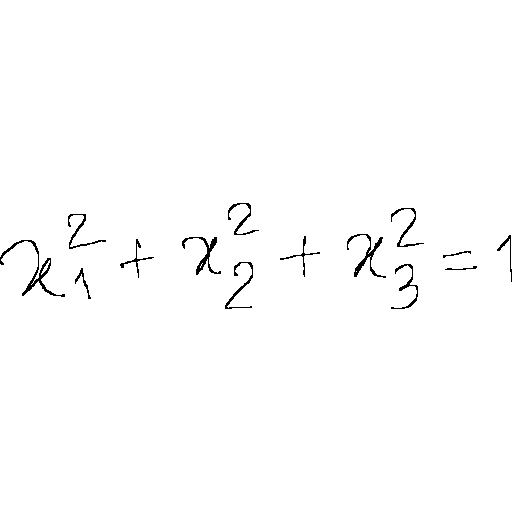 x_1^2 + x_2^2 + x_3^2 = 1